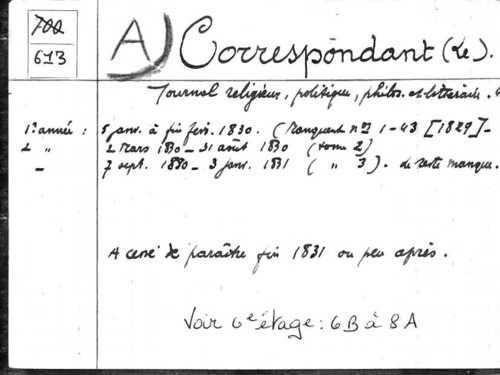 700
613
A) Correspondant (Le).
Journal religieux, politique, philos. et littéraire.
1e année : 5 janv. à fin févr. 1830. (Manquent nos 1-43 [1829].-
2 " 2 Mars 1830 - 31 août 1830 (tome 2)
- 7 sept. 1830 - 3 janv. 1831 ( " 3). Le reste manque.
A cessé de paraître fin 1831 ou peu après.
Voir 6e étage : 6B à 8A